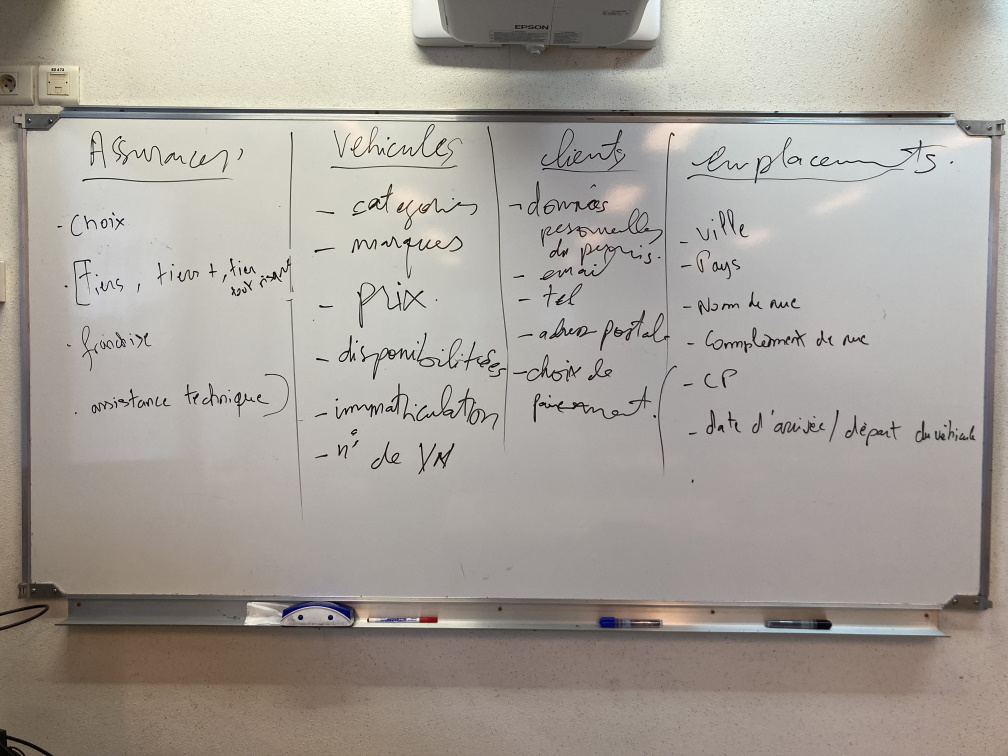 EPSON
Assurances
- Choix
. [Tiers, tiers +, tier
tout
. franchise
. assistance technique)
Véhicules
- categories
- marques
- prix.
- disponibilitées
- immatriculation
- n° de
clients
- données
personnelles
du permis.
- email
- tel
- adress postal
- choix de
paiement.
emplacements.
- ville
- Pays
- Nom de rue
- Complément de rue
- CP
- date d'arrivée/départ du véhicule